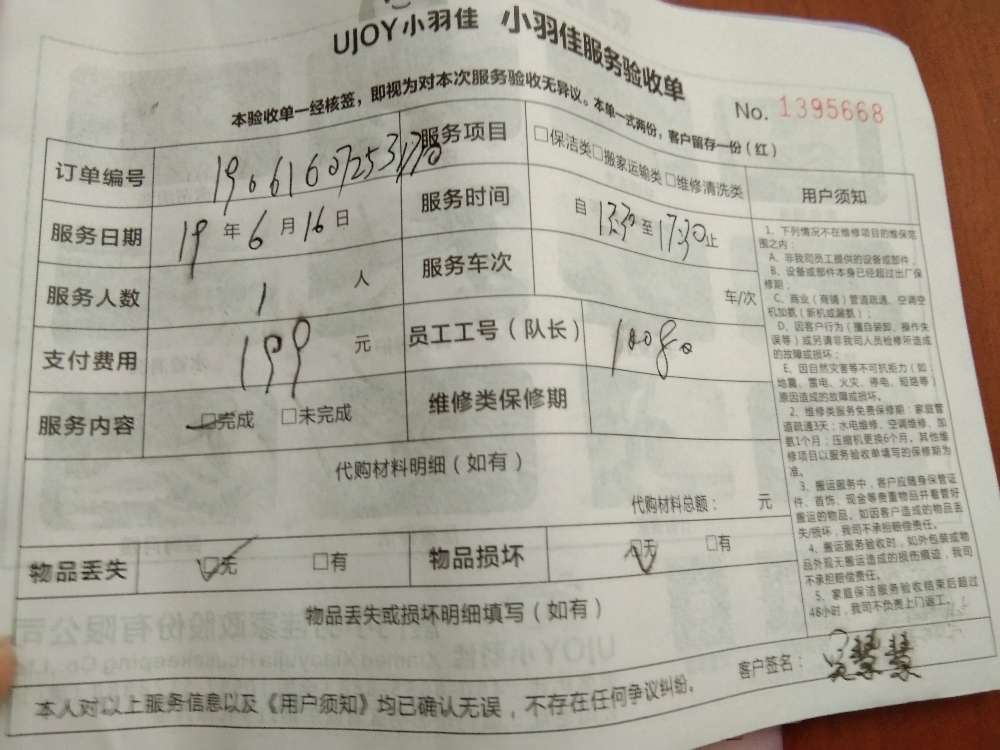 UJOY小羽佳 小羽佳服务验收单
本验收单一经核签，即视为对本次服务验收无异议。本单一式两份，客户留存一份（红）
No. 1395668
订单编号
服务项目 □保洁类□搬家运输类□维修清洗类
服务日期 19年6月16日
服务时间 自13:30至17:30止
服务人数 1人
服务车次 车/次
支付费用 199元
员工工号（队长） 10080
服务内容 □完成 □未完成
维修类保修期
代购材料明细（如有）
代购材料总额： 元
物品丢失 □无 □有
物品损坏 □无 □有
物品丢失或损坏明细填写（如有）
用户须知
1、下列情况不在维修项目的维保范
围之内：
A、非我司员工提供的设备或部件；
B、设备或部件本身已经超过出厂保
修期；
C、商业（商铺）管道疏通、空调空
机加氨（新机或漏氨）；
D、因客户行为（擅自装卸、操作失
误等）或另请非我司人员检修所造成
的故障或损坏；
E、因自然灾害等不可抗拒力（如：
地震、雷电、火灾、停电、短路等）
原因造成的故障或损坏。
2、维修类服务免费保修期：家庭管
道疏通3天；水电维修、空调维修、加
氨1个月；压缩机更换6个月。其他维
修项目以服务验收单填写的保修期为
准。
3、搬运服务中，客户应随身保管证
件、首饰、现金等贵重物品并看管好
搬运的物品。如因客户造成的物品丢
失/损坏，我司不承担赔偿责任。
4、搬运服务验收时，如外包装或物
品外观无搬运造成的损伤痕迹，我司
不承担赔偿责任。
5、家庭保洁服务验收结束后超过
48小时，我司不负责上门返工。
客户签名：
本人对以上服务信息以及《用户须知》均已确认无误，不存在任何争议纠纷。